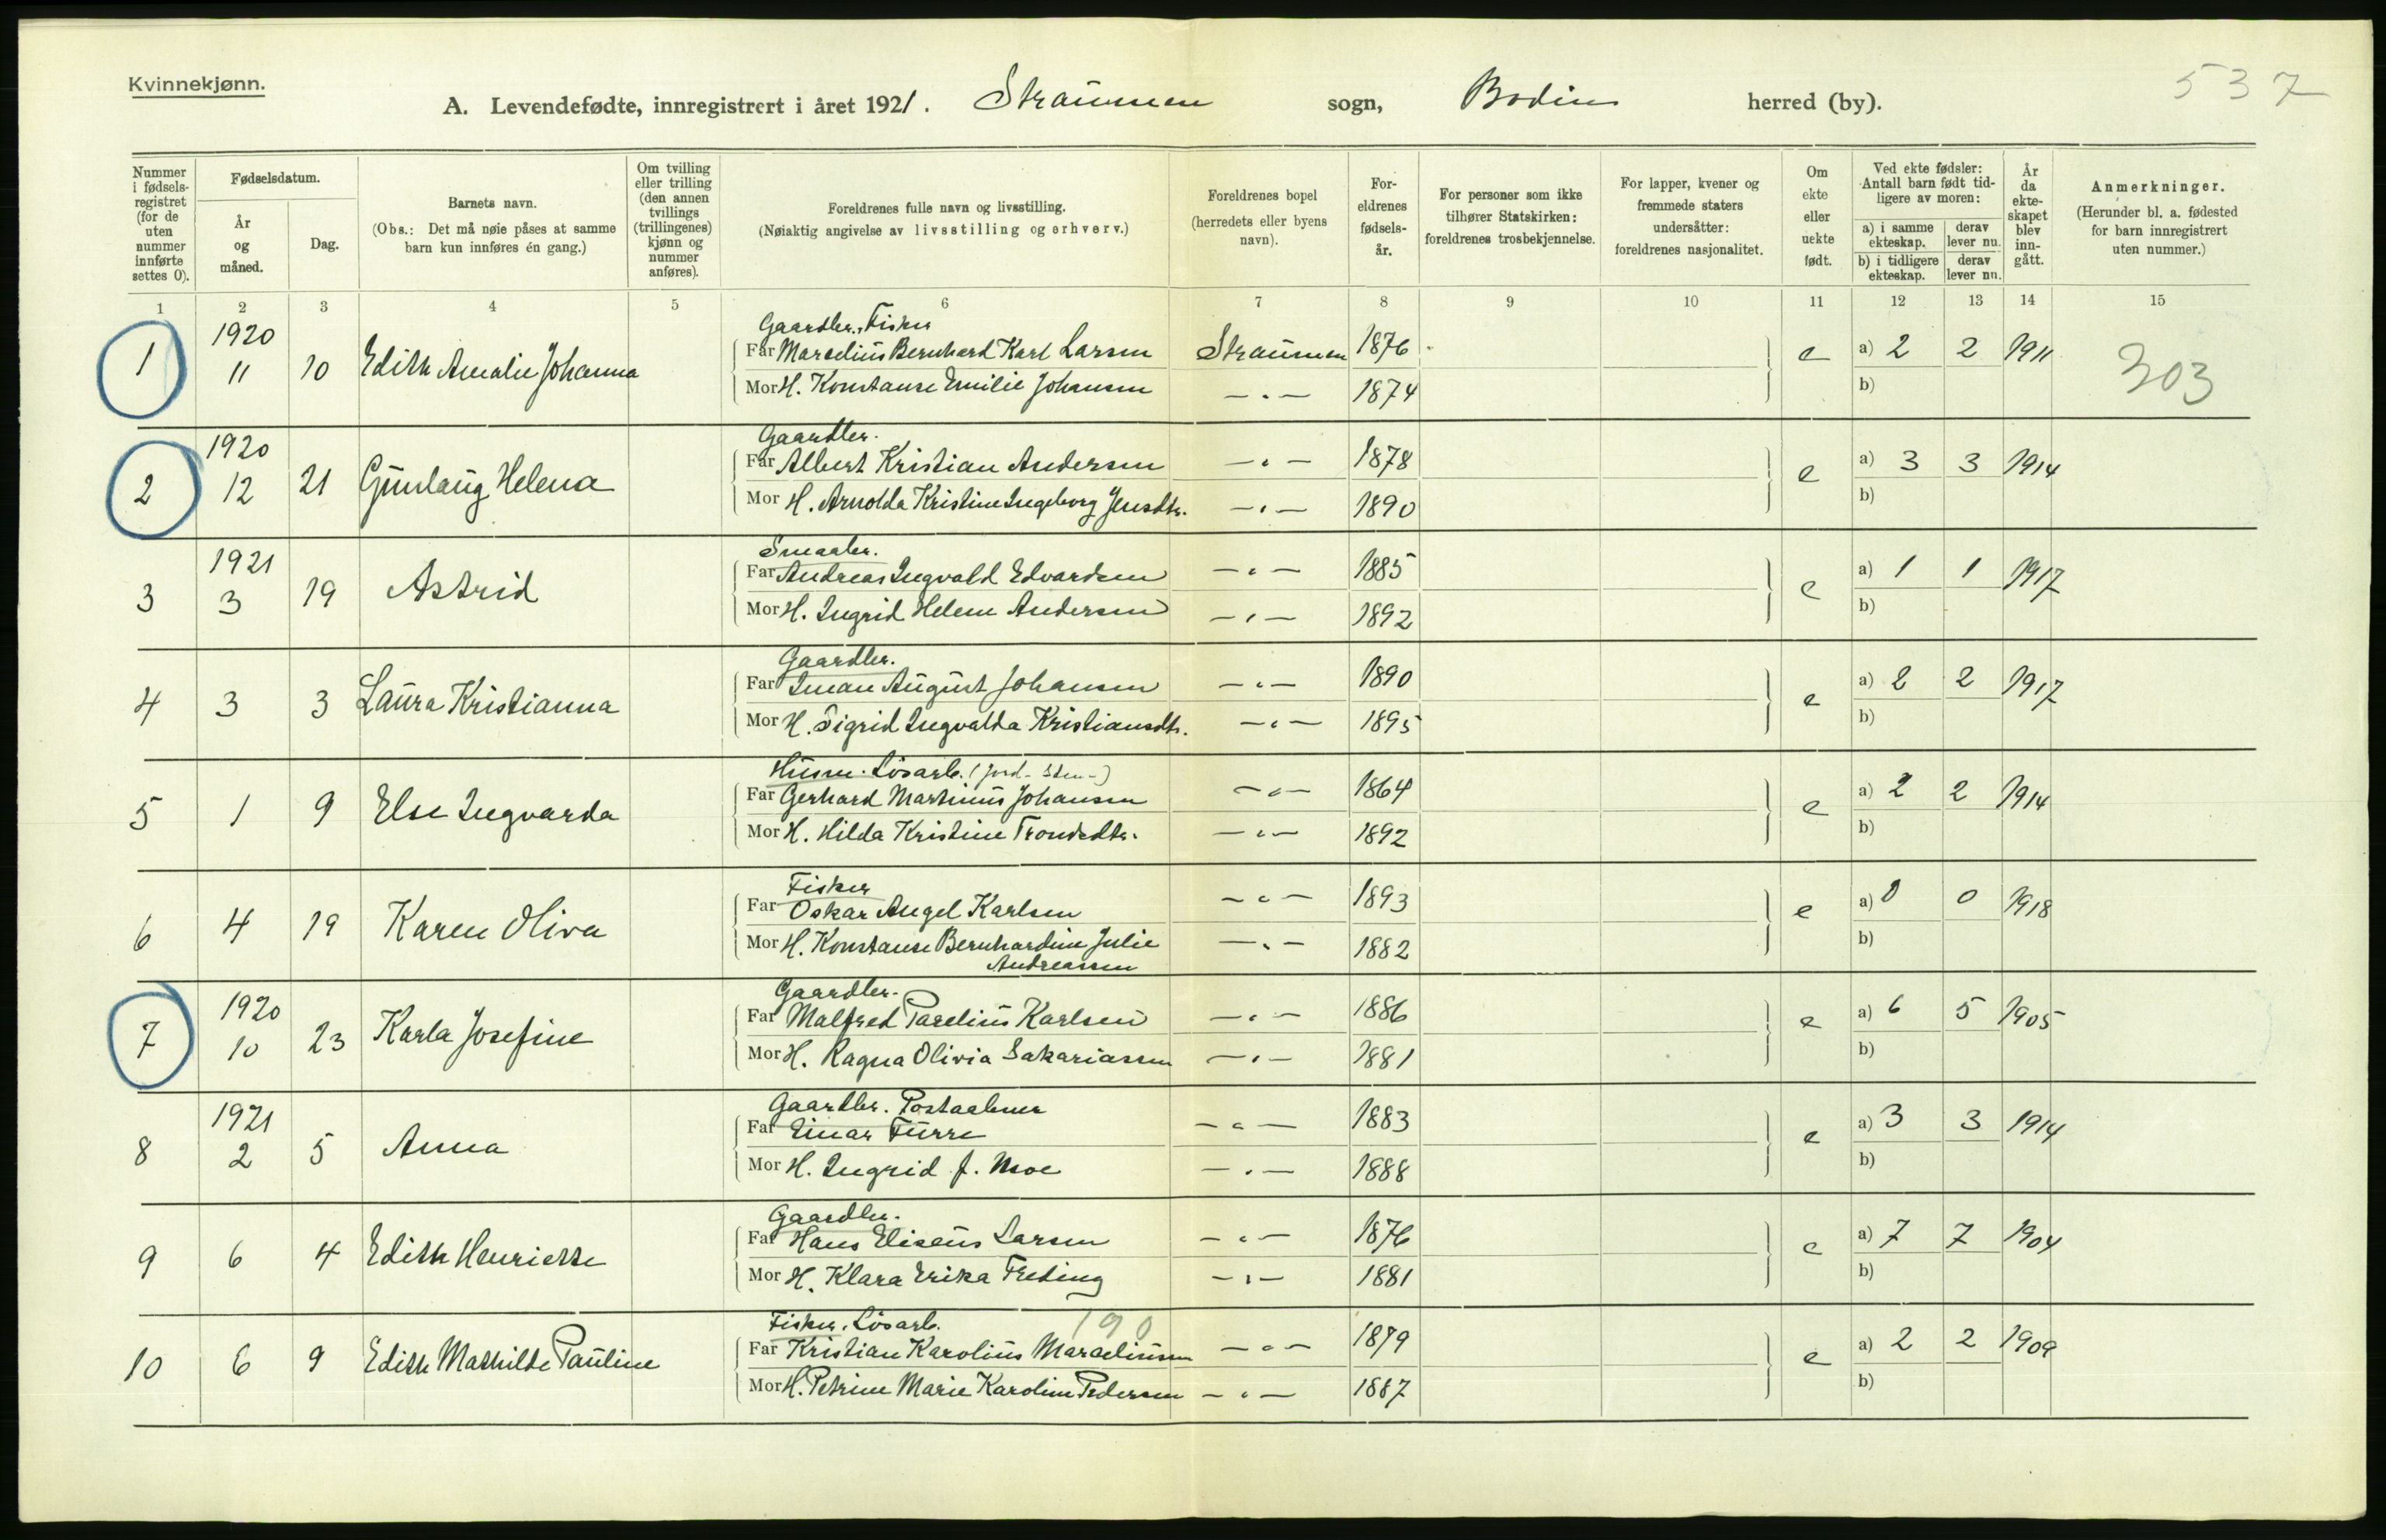 Kvinnekjønn.
537
A. Levendefødte, innregistrert i året 1921. Straumen sogn, Bodin herred (by).
Nummer i fødsels-registret (for de uten nummer innførte settes 0).
Fødselsdatum.
År og måned.
Dag.
Barnets navn.
(Obs.: Det må nøie påses at samme barn kun innføres én gang.)
Om tvilling eller trilling (den annen tvillings (trillingenes) kjønn og nummer anføres).
Foreldrenes fulle navn og livsstilling.
(Nøiaktig angivelse av livsstilling og erhverv.)
Foreldrenes bopel (herredets eller byens navn).
For-eldrenes fødsels-år.
For personer som ikke tilhører Statskirken: foreldrenes trosbekjennelse.
For lapper, kvener og fremmede staters undersåtter: foreldrenes nasjonalitet.
Om ekte eller uekte født.
Ved ekte fødsler: Antall barn født tid-ligere av moren:
a) i samme ekteskap. derav lever nu.
b) i tidligere ekteskap. derav lever nu.
År da ekte-skapet blev inn-gått.
Anmerkninger.
(Herunder bl. a. fødested for barn innregistrert uten nummer.)
1 2 3 4 5 6 7 8 9 10 11 12 13 14 15
1920 Gaardbr., Fisker
1 11 10 Edith Amalie Johanna Far Marselius Bernhard Karl Larsen Straumen 1876 e a) 2 2 1911 303
Mor H. Konstanse Emilie Johansen — " — 1874 b)
1920 Gaardbr.
2 12 21 Gunlaug Helena Far Albert Kristian Andersen — " — 1878 e a) 3 3 1914
Mor H. Arnolda Kristine Ingeborg Jensdtr. — " — 1890 b)
1921 Smaabr.
3 3 19 Astrid Far Andreas Ingvald Edvardsen — " — 1885 e a) 1 1 1917
Mor H. Ingrid Helene Andersen — " — 1892 b)
Gaardbr.
4 3 3 Laura Kristianna Far Iman August Johansen — " — 1890 e a) 2 2 1917
Mor H. Sigrid Ingvalda Kristiansdtr. — " — 1895 b)
Husm. Løsarb. (jord- sten-)
5 1 9 Else Ingvarda Far Gerhard Martinus Johansen — " — 1864 e a) 2 2 1914
Mor H. Hilda Kristine Trondsdtr. — " — 1892 b)
Fisker
6 4 19 Karen Oliva Far Oskar Angel Karlsen — " — 1893 e a) 0 0 1918
Mor H. Konstanse Bernhardine Julie — " — 1882 b)
Andreassen
1920 Gaardbr.
7 10 23 Karla Josefine Far Malfred Parelius Karlsen — " — 1886 e a) 6 5 1905
Mor H. Ragna Olivia Sakariassen — " — 1881 b)
1921 Gaardbr. Postaabner
8 2 5 Anna Far Einar Furre — " — 1883 e a) 3 3 1914
Mor H. Ingrid J. Moe — " — 1888 b)
Gaardbr.
9 6 4 Edith Henriette Far Hans Eliseus Larsen — " — 1876 e a) 7 7 1904
Mor H. Klara Erika Freding — " — 1881 b)
Fisker, Løsarb. 190
10 6 9 Edith Mathilde Pauline Far Kristian Karolius Marseliussen — " — 1879 e a) 2 2 1909
Mor H. Petrine Marie Karoline Pedersen — " — 1887 b)